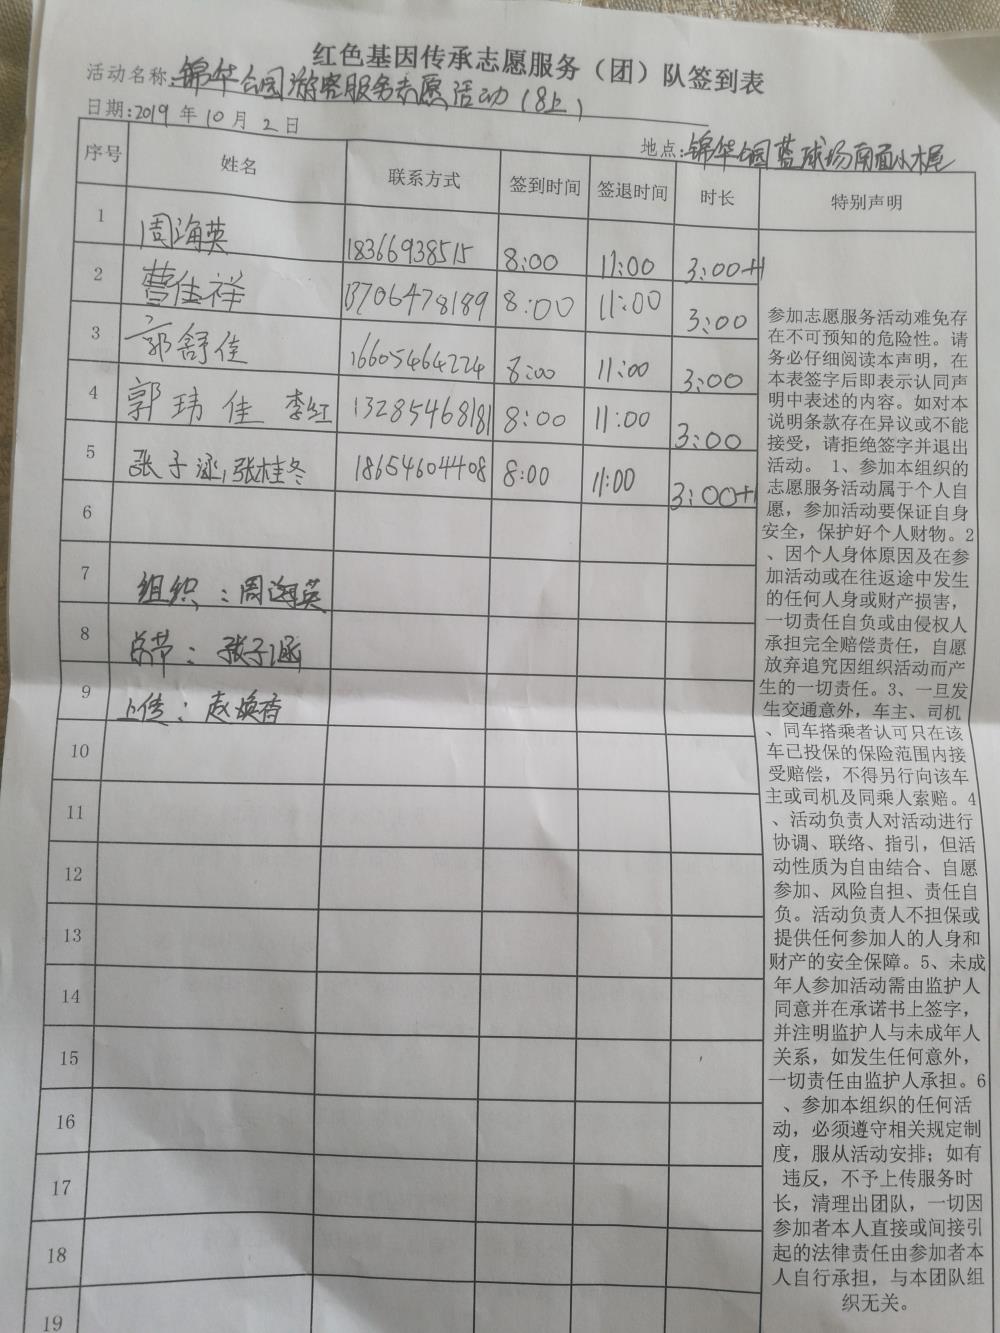 红色基因传承志愿服务（团）队签到表
活动名称:锦华公园游客服务志愿活动（8上）
日期:2019年10月2日
地点:锦华公园篮球场南面小木屋
序号 姓名 联系方式 签到时间 签退时间 时长 特别声明
1 周海英 18366938515 8:00 11:00 3:00+1
2 曹佳祥 13706478189 8:00 11:00 3:00
3 郭舒佳 16605464224 8:00 11:00 3:00
4 郭玮佳 李红 13285468181 8:00 11:00 3:00
5 张子涵,张桂冬 18654604408 8:00 11:00 3:00+1
6
7 组织：周海英
8 总带：张子涵
9 上传：赵焕香
10
11
12
13
14
15
16
17
18
19
参加志愿服务活动难免存
在不可预知的危险性。请
务必仔细阅读本声明，在
本表签字后即表示认同声
明中表述的内容。如对本
说明条款存在异议或不能
接受，请拒绝签字并退出
活动。1、参加本组织的
志愿服务活动属于个人自
愿，参加活动要保证自身
安全，保护好个人财物。2
、因个人身体原因及在参
加活动或在往返途中发生
的任何人身或财产损害，
一切责任自负或由侵权人
承担完全赔偿责任，自愿
放弃追究因组织活动而产
生的一切责任。3、一旦发
生交通意外，车主、司机
、同车搭乘者认可只在该
车已投保的保险范围内接
受赔偿，不得另行向该车
主或司机及同乘人索赔。4
、活动负责人对活动进行
协调、联络、指引，但活
动性质为自由结合、自愿
参加、风险自担、责任自
负。活动负责人不担保或
提供任何参加人的人身和
财产的安全保障。5、未成
年人参加活动需由监护人
同意并在承诺书上签字，
并注明监护人与未成年人
关系，如发生任何意外，
一切责任由监护人承担。6
、参加本组织的任何活
动，必须遵守相关规定制
度，服从活动安排；如有
违反，不予上传服务时
长，清理出团队，一切因
参加者本人直接或间接引
起的法律责任由参加者本
人自行承担，与本团队组
织无关。